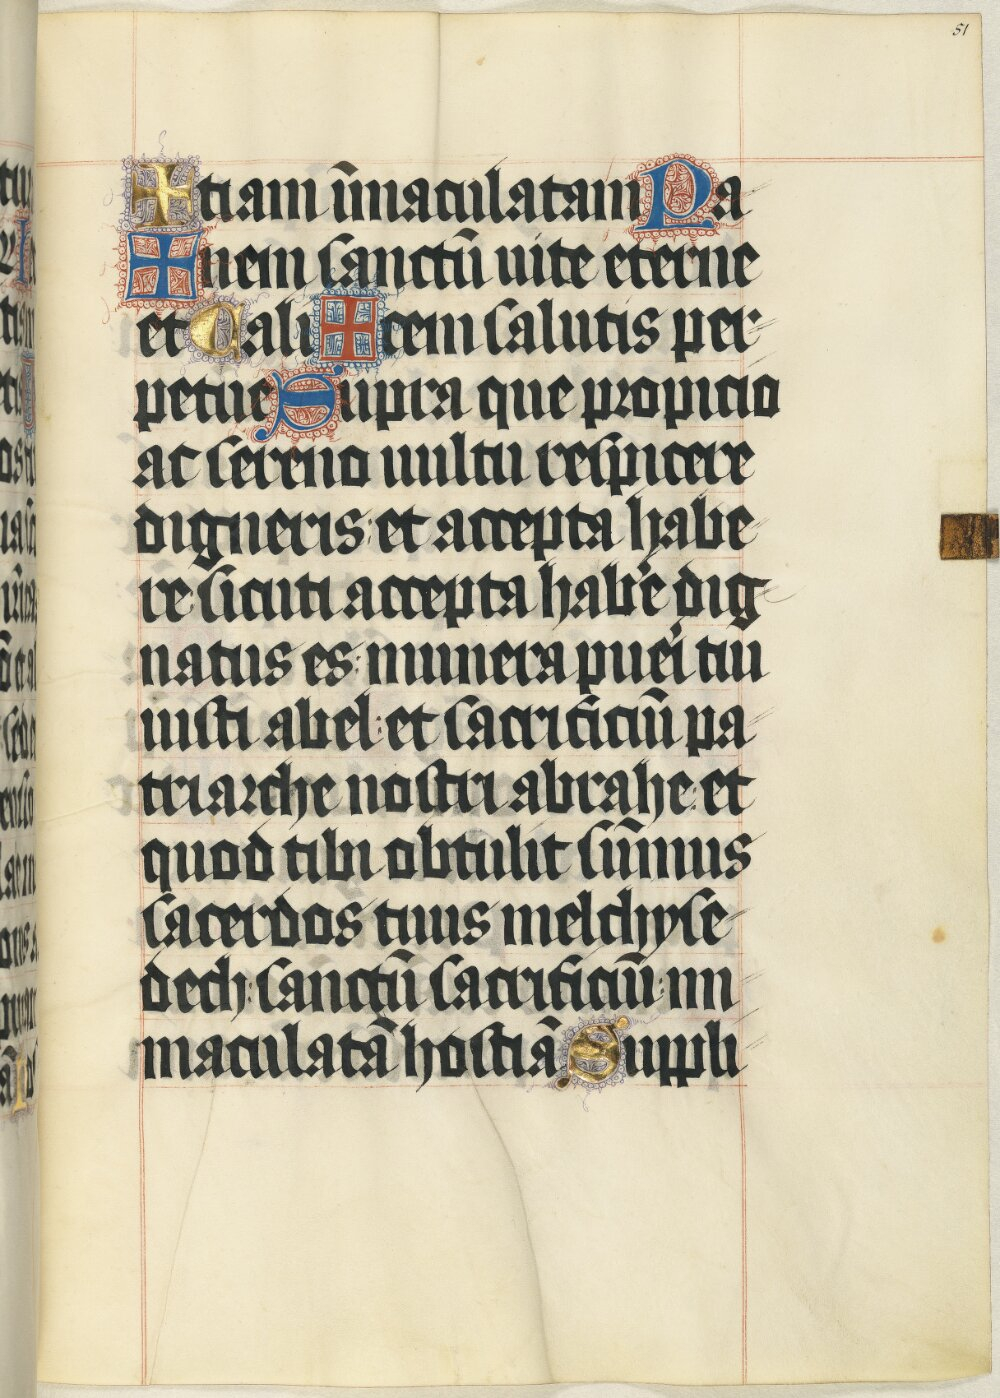 51
✠ tiam īmaculatam Pa
✠ nem sanctū uite eterne
et Cali ✠ cem salutis per
petue Supra que propicio
ac sereno uultu respicere
digneris: et accepta habe
re: sicuti accepta hab'e dig
natus es: munera puei tui
iusti abel: et sacrificiū pa
triarche nostri abrahe: et
quod tibi obtulit sūmus
sacerdos tuus melchyse
dech: sanctū sacrificiū: im
maculatā hostiā Suppli